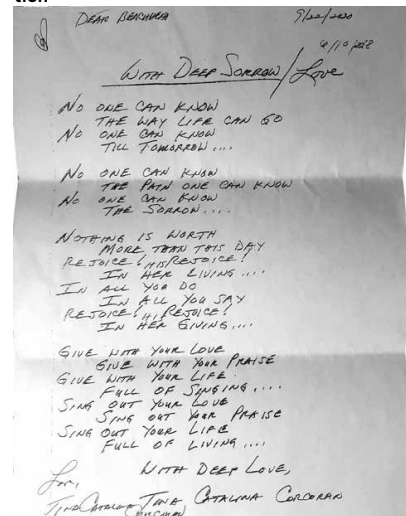 tion
DEAR
9/22/2020
WITH DEEP SORROW/Love
NO ONE CAN KNOW
THE WAY LIFE CAN GO
NO ONE CAN KNOW
TILL TOMORROW....
NO ONE CAN KNOW
THE PAIN ONE CAN KNOW
NO ONE CAN KNOW
THE SORROW....
NOTHING IS WORTH
MORE THAN THIS DAY
REJOICE! HIS REJOICE!
IN HER LIVING....
IN ALL YOU DO
IN ALL YOU SAY
REJOICE! HIS REJOICE!
IN HER GIVING....
GIVE WITH YOUR LOVE
GIVE WITH YOUR PRAISE
GIVE WITH YOUR LIFE
FULL OF SINGING....
SING OUT YOUR LOVE
SING OUT YOUR PRAISE
SING OUT YOUR LIFE
FULL OF LIVING....
WITH DEEP LOVE,
Love,
CATALINA CORCORAN